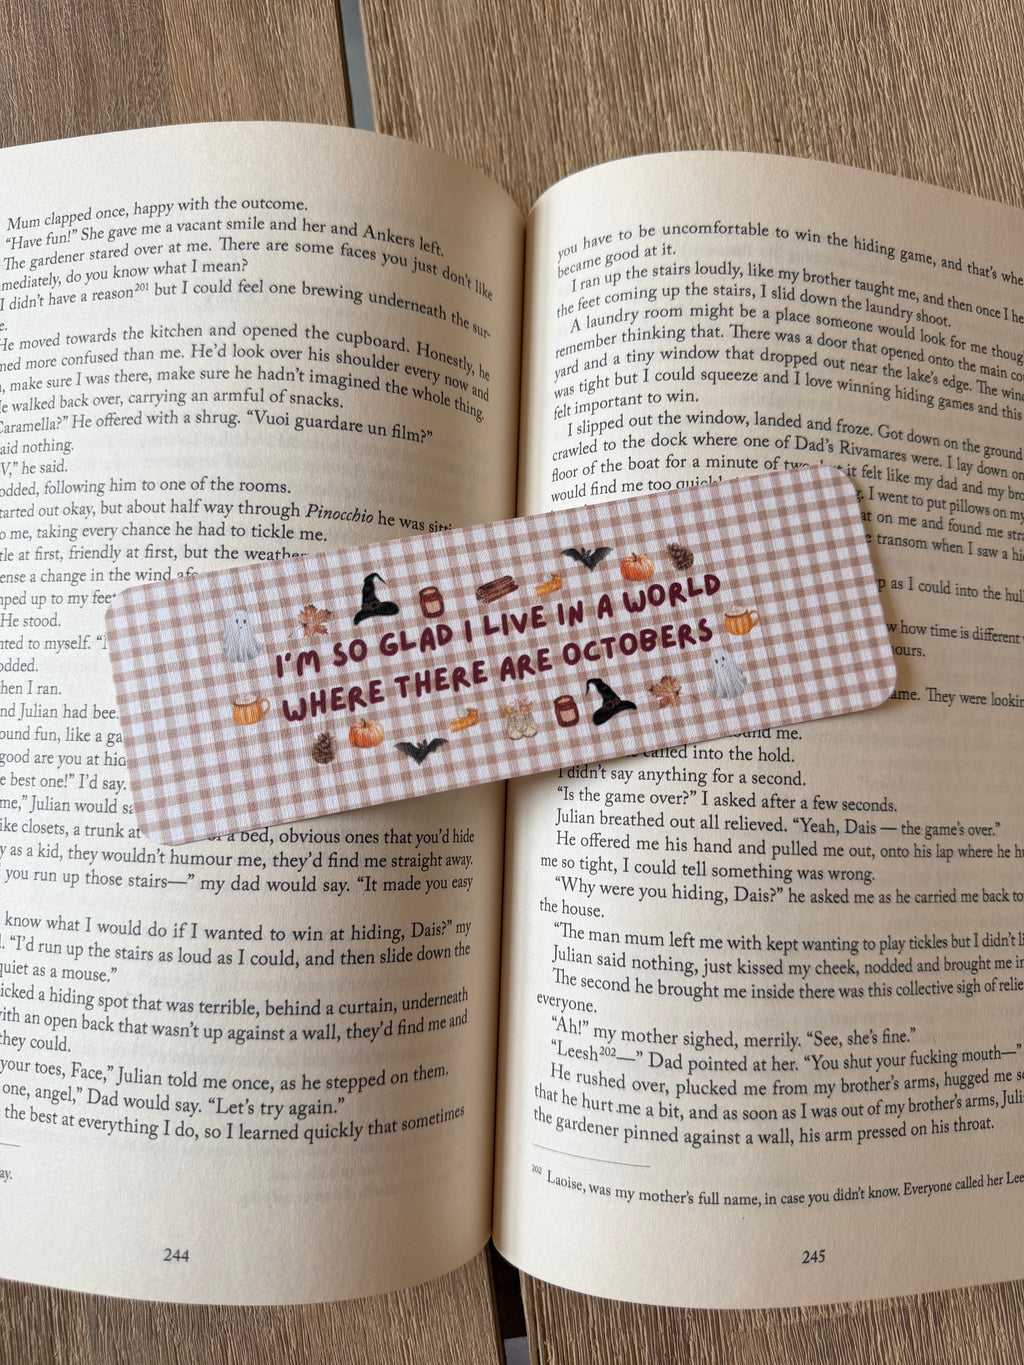 Mum clapped once, happy with the outcome.
“Have fun!” She gave me a vacant smile and her and Ankers left.
The gardener stared over at me. There are some faces you just don’t like
mediately, do you know what I mean?
I didn’t have a reason²⁰¹ but I could feel one brewing underneath the sur-
e.
He moved towards the kitchen and opened the cupboard. Honestly, he
med more confused than me. He’d look over his shoulder every now and
, make sure I was there, make sure he hadn’t imagined the whole thing.
e walked back over, carrying an armful of snacks.
Caramella?” He offered with a shrug. “Vuoi guardare un film?”
aid nothing.
V,” he said.
odded, following him to one of the rooms.
tarted out okay, but about half way through Pinocchio he was sitti
o me, taking every chance he had to tickle me.
tle at first, friendly at first, but the weather
ense a change in the wind
ped up to my feet
He stood.
ted to myself.
odded.
hen I ran.
nd Julian had bee
ound fun, like a ga
good are you at hid
e best one!” I’d say.
me,” Julian would sa
ike closets, a trunk at of a bed, obvious ones that you’d hide
y as a kid, they wouldn’t humour me, they’d find me straight away.
you run up those stairs—” my dad would say. “It made you easy
know what I would do if I wanted to win at hiding, Dais?” my
. “I’d run up the stairs as loud as I could, and then slide down the
quiet as a mouse.”
icked a hiding spot that was terrible, behind a curtain, underneath
ith an open back that wasn’t up against a wall, they’d find me and
they could.
your toes, Face,” Julian told me once, as he stepped on them.
one, angel,” Dad would say. “Let’s try again.”
the best at everything I do, so I learned quickly that sometimes
ay.
244
I’M SO GLAD I LIVE IN A WORLD
WHERE THERE ARE OCTOBERS
you have to be uncomfortable to win the hiding game, and that’s whe
became good at it.
I ran up the stairs loudly, like my brother taught me, and then once I he
the feet coming up the stairs, I slid down the laundry shoot.
A laundry room might be a place someone would look for me thoug
remember thinking that. There was a door that opened onto the main co
yard and a tiny window that dropped out near the lake’s edge. The wind
was tight but I could squeeze and I love winning hiding games and this
felt important to win.
I slipped out the window, landed and froze. Got down on the ground
crawled to the dock where one of Dad’s Rivamares were. I lay down on
floor of the boat for a minute of two but it felt like my dad and my bro
would find me too quickly I went to put pillows on my
at on me and found me stra
e transom when I saw a hi
p as I could into the hull
w how time is different
ours.
ame. They were lookin
ound me.
called into the hold.
I didn’t say anything for a second.
“Is the game over?” I asked after a few seconds.
Julian breathed out all relieved. “Yeah, Dais — the game’s over.”
He offered me his hand and pulled me out, onto his lap where he hu
me so tight, I could tell something was wrong.
“Why were you hiding, Dais?” he asked me as he carried me back to
the house.
“The man mum left me with kept wanting to play tickles but I didn’t li
Julian said nothing, just kissed my cheek, nodded and brought me in
The second he brought me inside there was this collective sigh of relie
everyone.
“Ah!” my mother sighed, merrily. “See, she’s fine.”
“Leesh²⁰²—” Dad pointed at her. “You shut your fucking mouth—”
He rushed over, plucked me from my brother’s arms, hugged me so
that he hurt me a bit, and as soon as I was out of my brother’s arms, Juli
the gardener pinned against a wall, his arm pressed on his throat.
²⁰² Laoise, was my mother’s full name, in case you didn’t know. Everyone called her Lee
245